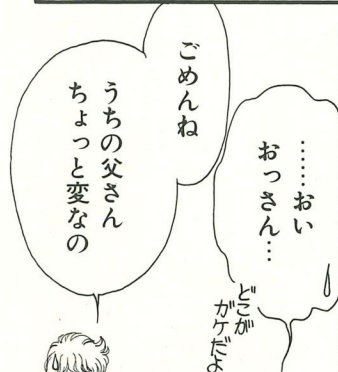 ……おい
おっさん…
どこが
ガケだよ
ごめんね
うちの父さん
ちょっと変なの